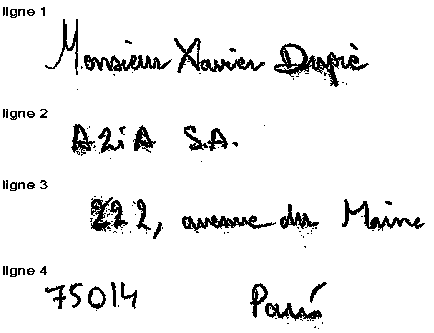 ligne 1
Monsieur Xavier Dupré
ligne 2
A2iA S.A.
ligne 3
222, avenue du Maine
ligne 4
75014 Paris